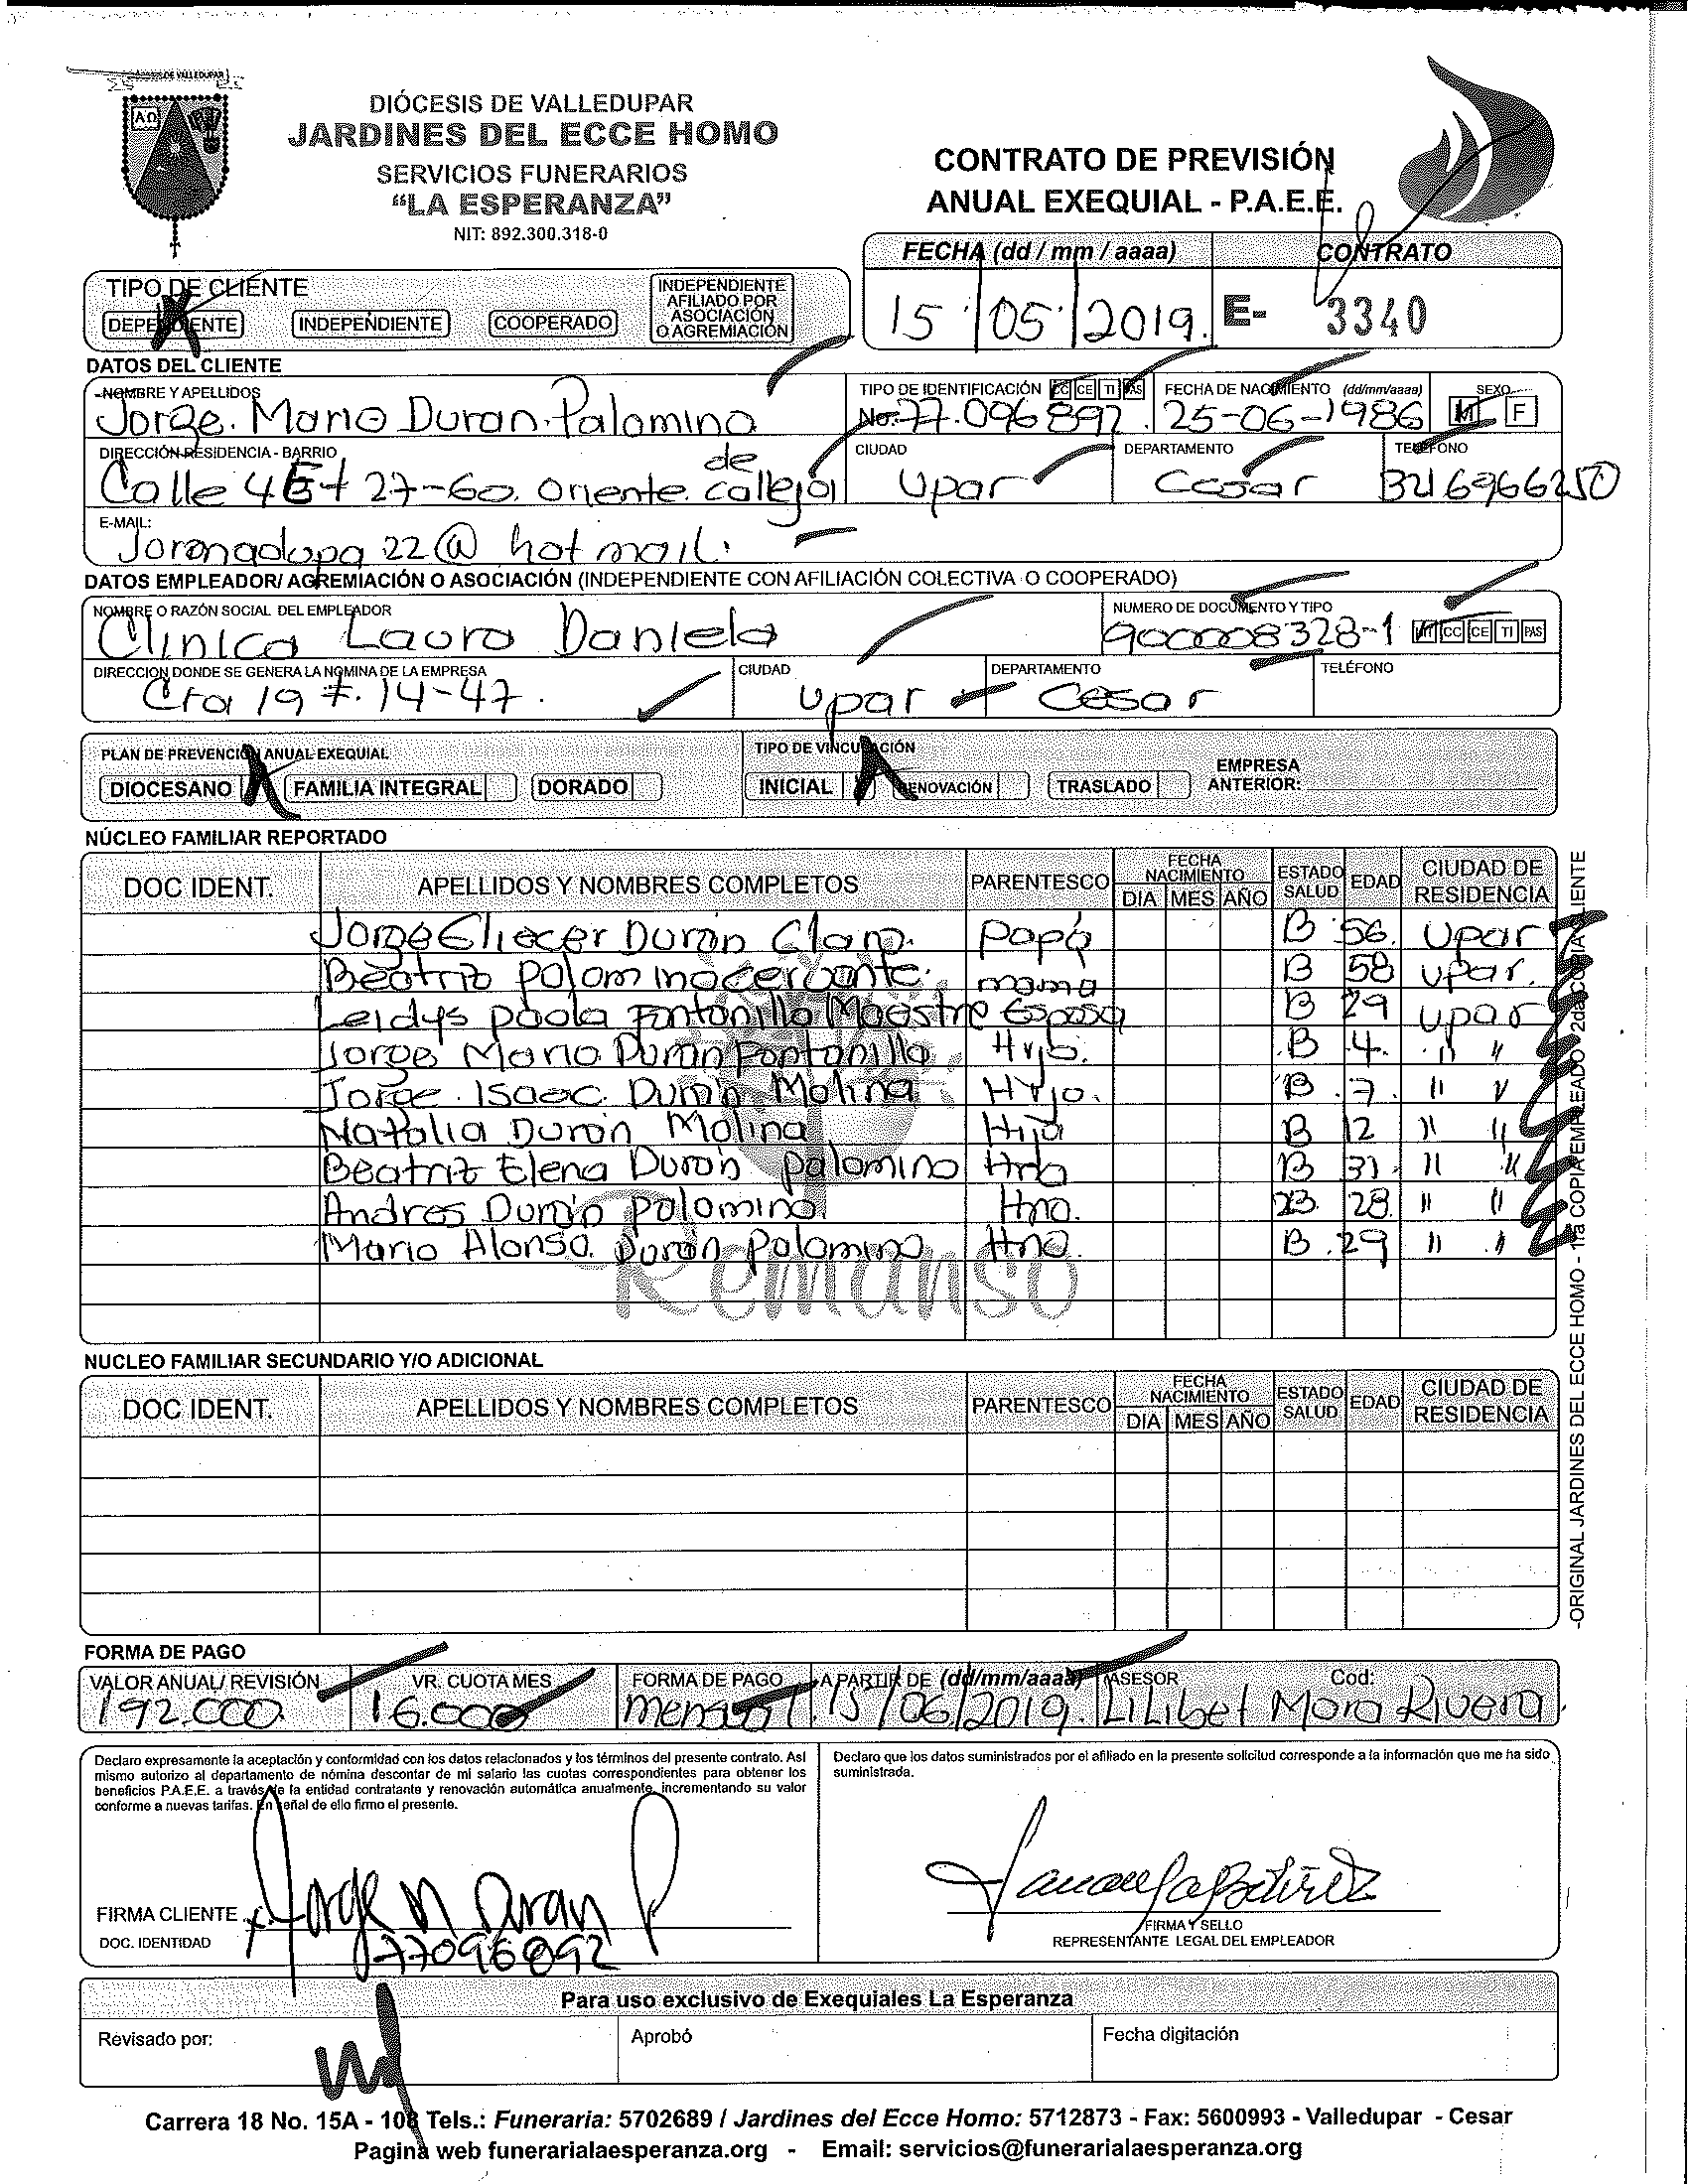 DIÓCESIS DE VALLEDUPAR
JARDINES DEL ECCE HOMO
SERVICIOS FUNERARIOS
“LA ESPERANZA”
NIT: 892.300.318-0
CONTRATO DE PREVISIÓN
ANUAL EXEQUIAL - P.A.E.E.
FECHA (dd / mm / aaaa) CONTRATO
15 / 05 / 2019. E- 3340
TIPO DE CLIENTE
DEPENDIENTE INDEPENDIENTE COOPERADO INDEPENDIENTE AFILIADO POR ASOCIACIÓN O AGREMIACIÓN
DATOS DEL CLIENTE
NOMBRE Y APELLIDOS TIPO DE IDENTIFICACIÓN CC CE TI PAS FECHA DE NACIMIENTO (dd/mm/aaaa) SEXO
Jorge. Mario Duran Palomino No. 77.096892. 25-06-1986 M F
DIRECCIÓN RESIDENCIA - BARRIO CIUDAD DEPARTAMENTO TELÉFONO
Calle 27-60. Oriente de callejai Upar Cesar 3216966250
E-MAIL:
22@ hotmail.
DATOS EMPLEADOR/ AGREMIACIÓN O ASOCIACIÓN (INDEPENDIENTE CON AFILIACIÓN COLECTIVA O COOPERADO)
NOMBRE O RAZÓN SOCIAL DEL EMPLEADOR NUMERO DE DOCUMENTO Y TIPO
Clinica Laura Daniela 900008328-1 NIT CC CE TI PAS
DIRECCION DONDE SE GENERA LA NÓMINA DE LA EMPRESA CIUDAD DEPARTAMENTO TELÉFONO
Cra 19 #. 14-47. Upar Cesar
PLAN DE PREVENCIÓN ANUAL EXEQUIAL TIPO DE VINCULACIÓN
DIOCESANO X FAMILIA INTEGRAL DORADO INICIAL X RENOVACIÓN TRASLADO EMPRESA ANTERIOR:
NÚCLEO FAMILIAR REPORTADO
DOC IDENT. APELLIDOS Y NOMBRES COMPLETOS PARENTESCO FECHA NACIMIENTO DIA MES AÑO ESTADO SALUD EDAD CIUDAD DE RESIDENCIA
Jorge Eliecer Durán Claro. Papá B 56. Upar
Beatriz Palomino cervante. mama B 58 upar.
Leidys paola Fontanilla Maestre Esposa B 29 upar
Jorge Mario Duran Fontanilla Hijo. B 4. " "
Jorge. Isaac. Durán Molina Hijo. B 7. " "
Natalia Durán Molina Hija B 12 " "
Beatriz Elena Durán palomino Hna B 31. " "
Andres Durán palomino. Hno. B. 28. " "
Mario Alonso. Duran Palomino Hno. B. 29 " "
Remanso
NUCLEO FAMILIAR SECUNDARIO Y/O ADICIONAL
DOC IDENT. APELLIDOS Y NOMBRES COMPLETOS PARENTESCO FECHA NACIMIENTO DIA MES AÑO ESTADO SALUD EDAD CIUDAD DE RESIDENCIA
-ORIGINAL JARDINES DEL ECCE HOMO - 1ra COPIA EMPLEADO 2da COPIA CLIENTE
FORMA DE PAGO
VALOR ANUAL/ REVISIÓN VR. CUOTA MES FORMA DE PAGO A PARTIR DE (dd/mm/aaaa) ASESOR Cod:
192.000. 16.000 mensual. 15/06/2019. Lilibet Mora Rivera.
Declaro expresamente la aceptación y conformidad con los datos relacionados y los términos del presente contrato. Así
mismo autorizo al departamento de nómina descontar de mi salario las cuotas correspondientes para obtener los
beneficios P.A.E.E. a través de la entidad contratante y renovación automática anualmente, incrementando su valor
conforme a nuevas tarifas. En señal de ello firmo el presente.
Declaro que los datos suministrados por el afiliado en la presente solicitud corresponde a la información que me ha sido
suministrada.
FIRMA CLIENTE x Jorge M Duran P
DOC. IDENTIDAD 77096892
FIRMA Y SELLO
REPRESENTANTE LEGAL DEL EMPLEADOR
Para uso exclusivo de Exequiales La Esperanza
Revisado por: Aprobó Fecha digitación
Carrera 18 No. 15A - 108 Tels.: Funeraria: 5702689 / Jardines del Ecce Homo: 5712873 - Fax: 5600993 - Valledupar - Cesar
Pagina web funerarialaesperanza.org - Email: servicios@funerarialaesperanza.org